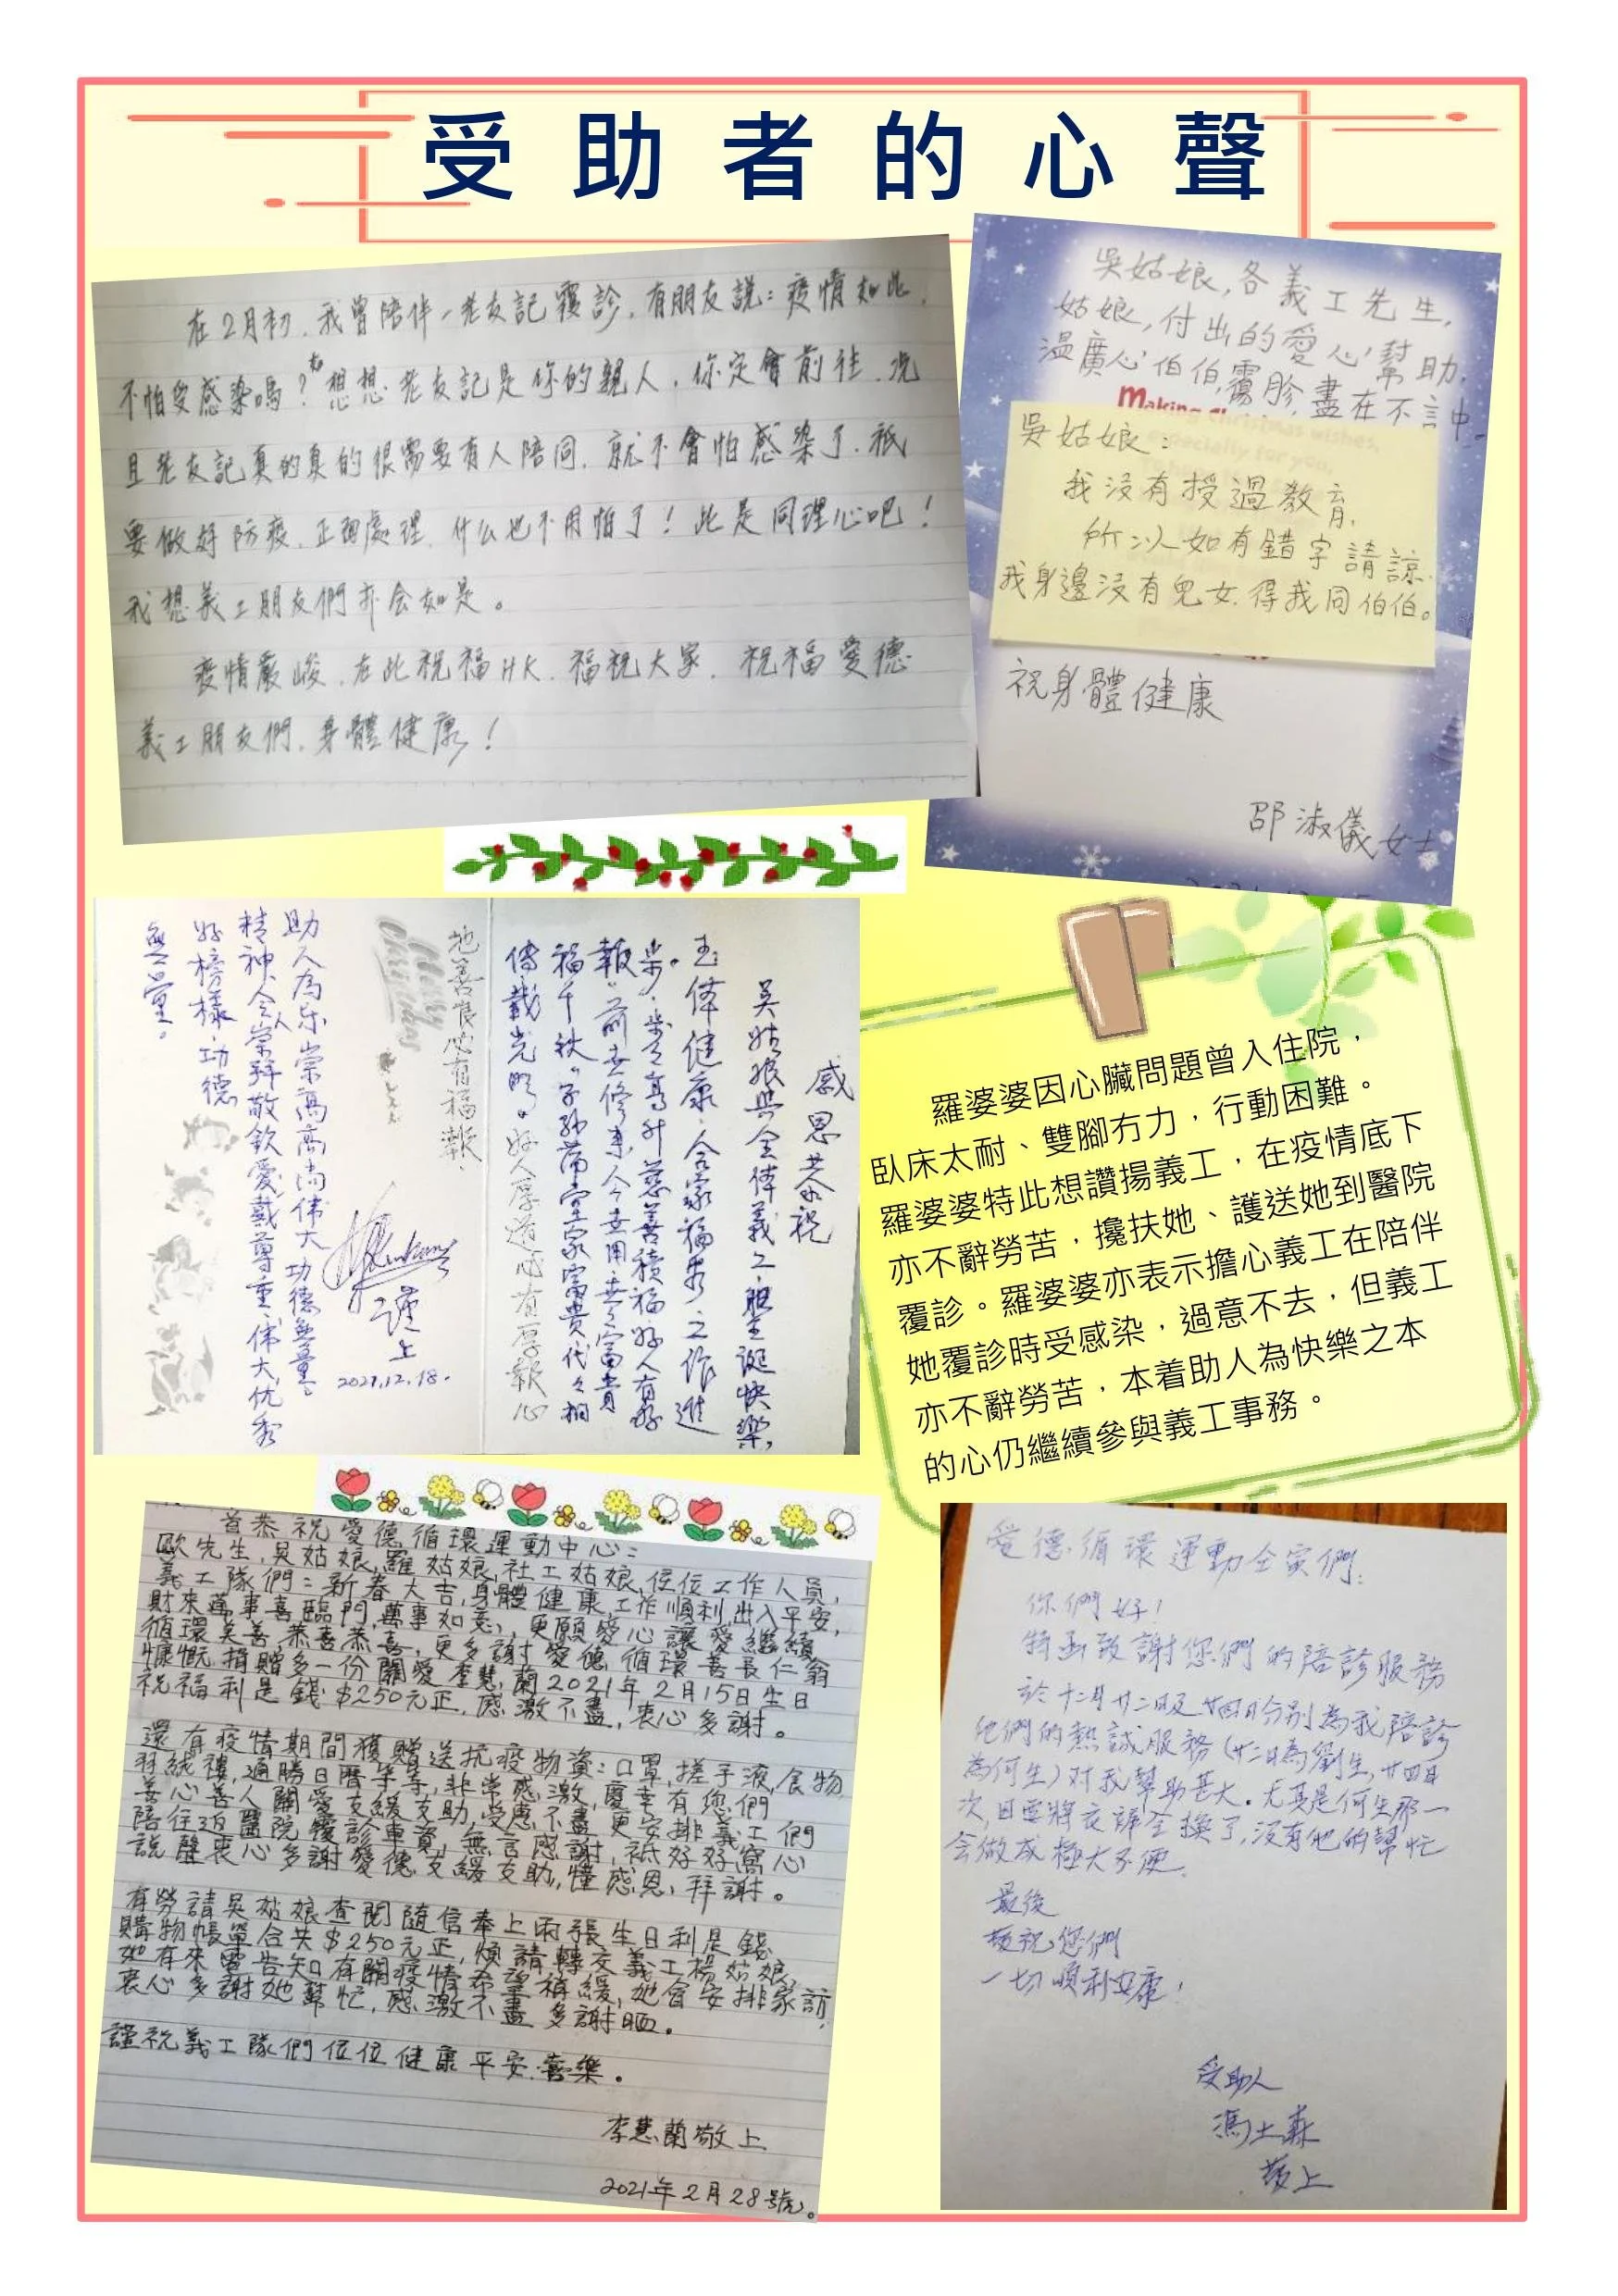 受助者的心聲
在2月初，我曾陪伴一老友記覆診，有朋友說：疫情如此，
不怕受感染嗎？想想老友記是你的親人，你定會前往，況
且老友記真的真的很需要有人陪同，就不會怕感染了，祇
要做好防疫，正面處理，什么也不用怕了！此是同理心吧！
我想義工朋友們亦会如是。
疫情嚴峻，在此祝福HK，福祝大家，祝福愛德
義工朋友們，身體健康！
吳姑娘，各義工先生，
姑娘，付出的愛心幫助，
溫廣心伯伯，盡在不言中
Making Christmas wishes,
especially for you,
吳姑娘：
我沒有授過教育，
所以如有錯字請諒，
我身邊沒有兒女，得我同伯伯。
祝身體健康
邵淑儀女士
感恩恭祝
吳姑娘與全体義工聖誕快樂，
玉体健康，合家福秀，工作進
步，步步高升，慈善積福，好人有好
報，前世修來今世用，世世富貴
福千秋，子孫滿堂家富貴，代代相
傳載光明，好人厚道心有厚報，心
地善良必有福報。
Merry Christmas
助人為乐崇高高尚偉大功德無量。
精神令人崇拜敬欽愛戴尊重，偉大优秀
好榜樣，功德
無量。
謹上
2021.12.18.
羅婆婆因心臟問題曾入住院，
臥床太耐、雙腳冇力，行動困難。
羅婆婆特此想讚揚義工，在疫情底下
亦不辭勞苦，攙扶她、護送她到醫院
覆診。羅婆婆亦表示擔心義工在陪伴
她覆診時受感染，過意不去，但義工
亦不辭勞苦，本着助人為快樂之本
的心仍繼續參與義工事務。
首恭祝愛德循環運動中心：
歐先生，吳姑娘，羅姑娘，社工姑娘，位位工作人員，
義工隊們：新春大吉，身體健康，工作順利，出入平安，
財來運事喜臨門，萬事如意，更願愛心讓愛繼續
循環美善，恭喜恭喜，更多謝愛德循環善長仁翁
慷慨捐贈多一份關愛李慧蘭2021年2月15日生日
祝福利是錢$250元正，感激不盡，衷心多謝。
還有疫情期間獲贈送抗疫物資：口罩，搓手液，食物，
羽絨褸，通勝日曆等等，非常感激，慶幸有您們
善心善人關愛支緩支助，受惠不盡，更安排義工們
陪往返醫院覆診車資，無言感謝，祇好好窩心
說聲衷心多謝愛德支緩支助，懂感恩，拜謝。
有勞請吳姑娘查閱隨信奉上兩張生日利是錢
購物帳單合共$250元正，煩請轉交義工楊姑娘，
她有來電告知有關疫情希望稍緩，她會安排家訪，
衷心多謝她幫忙，感激不盡，多謝晒。
謹祝義工隊們位位健康平安，喜樂。
李慧蘭敬上
2021年2月28號。
愛德循環運動全寅們：
你們好！
特函致謝您們的陪診服務
於十二月廿二日及廿四日分別為我陪診
他們的熱誠服務（廿二日為劉生，廿四日
為何生）对我幫助甚大。尤其是何生那一
次，因要將衣褲全換了，沒有他的幫忙
会做成極大不便。
最後
敬祝您們
一切順利安康！
受助人
馮土森
敬上